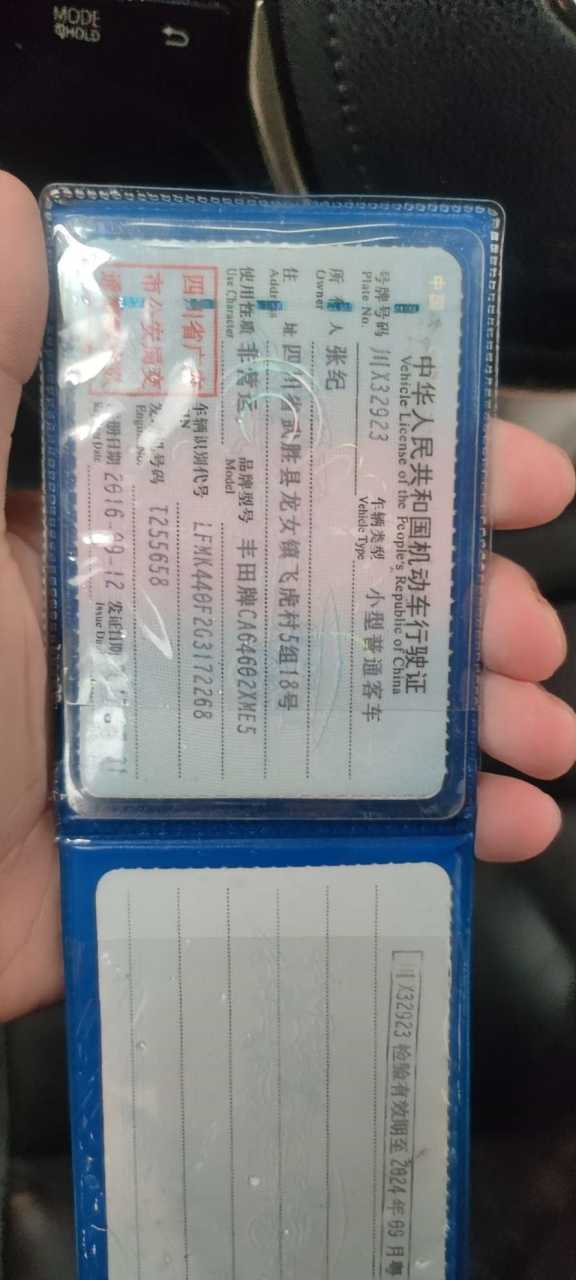 MODE
HOLD
中华人民共和国机动车行驶证
Vehicle License of the People's Republic of China
号牌号码 川X32923 车辆类型 小型普通客车
Plate No. Vehicle Type
所 有 人 张纪
Owner
住 址 四川省武胜县龙女镇飞虎村5组18号
Address
使用性质 非营运 品牌型号 丰田牌CA64602XME5
Use Character Model
四川省广
市公安局交
车辆识别代号 LFMK440F2G3172268
VIN
发 机号码 T255658
Engine No.
册日期 2016-09-12 发证日期
Issue Da
川X32923 检验有效期至2024年09月粤